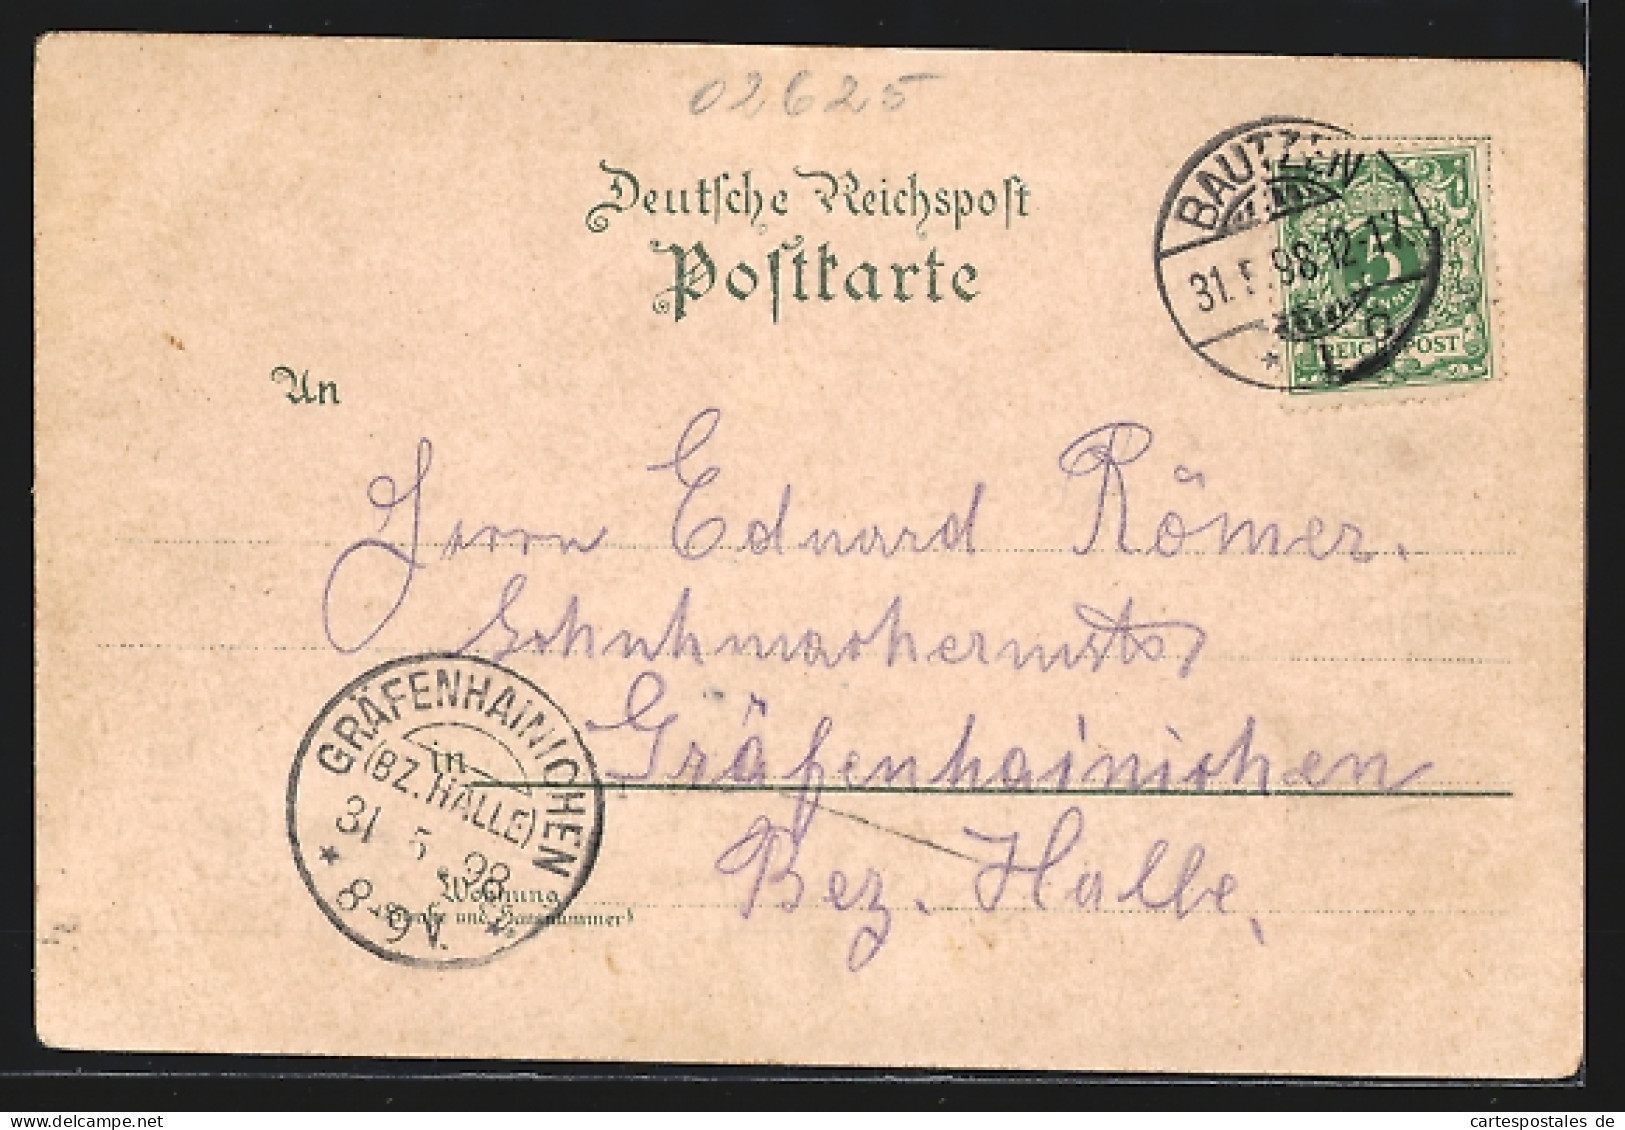 02625
Deutsche Reichspost
Postkarte
BAUTZEN
31.5.98.12-1V.
REICHSPOST
An
Herrn Eduard Römer.
Schuhmachermstr
in Gräfenhainichen
Bez. Halle.
GRÄFENHAINICHEN
(BZ. HALLE)
31 5 98
8-9V.
Wohnung
(Straße und Hausnummer)
cartespostales de